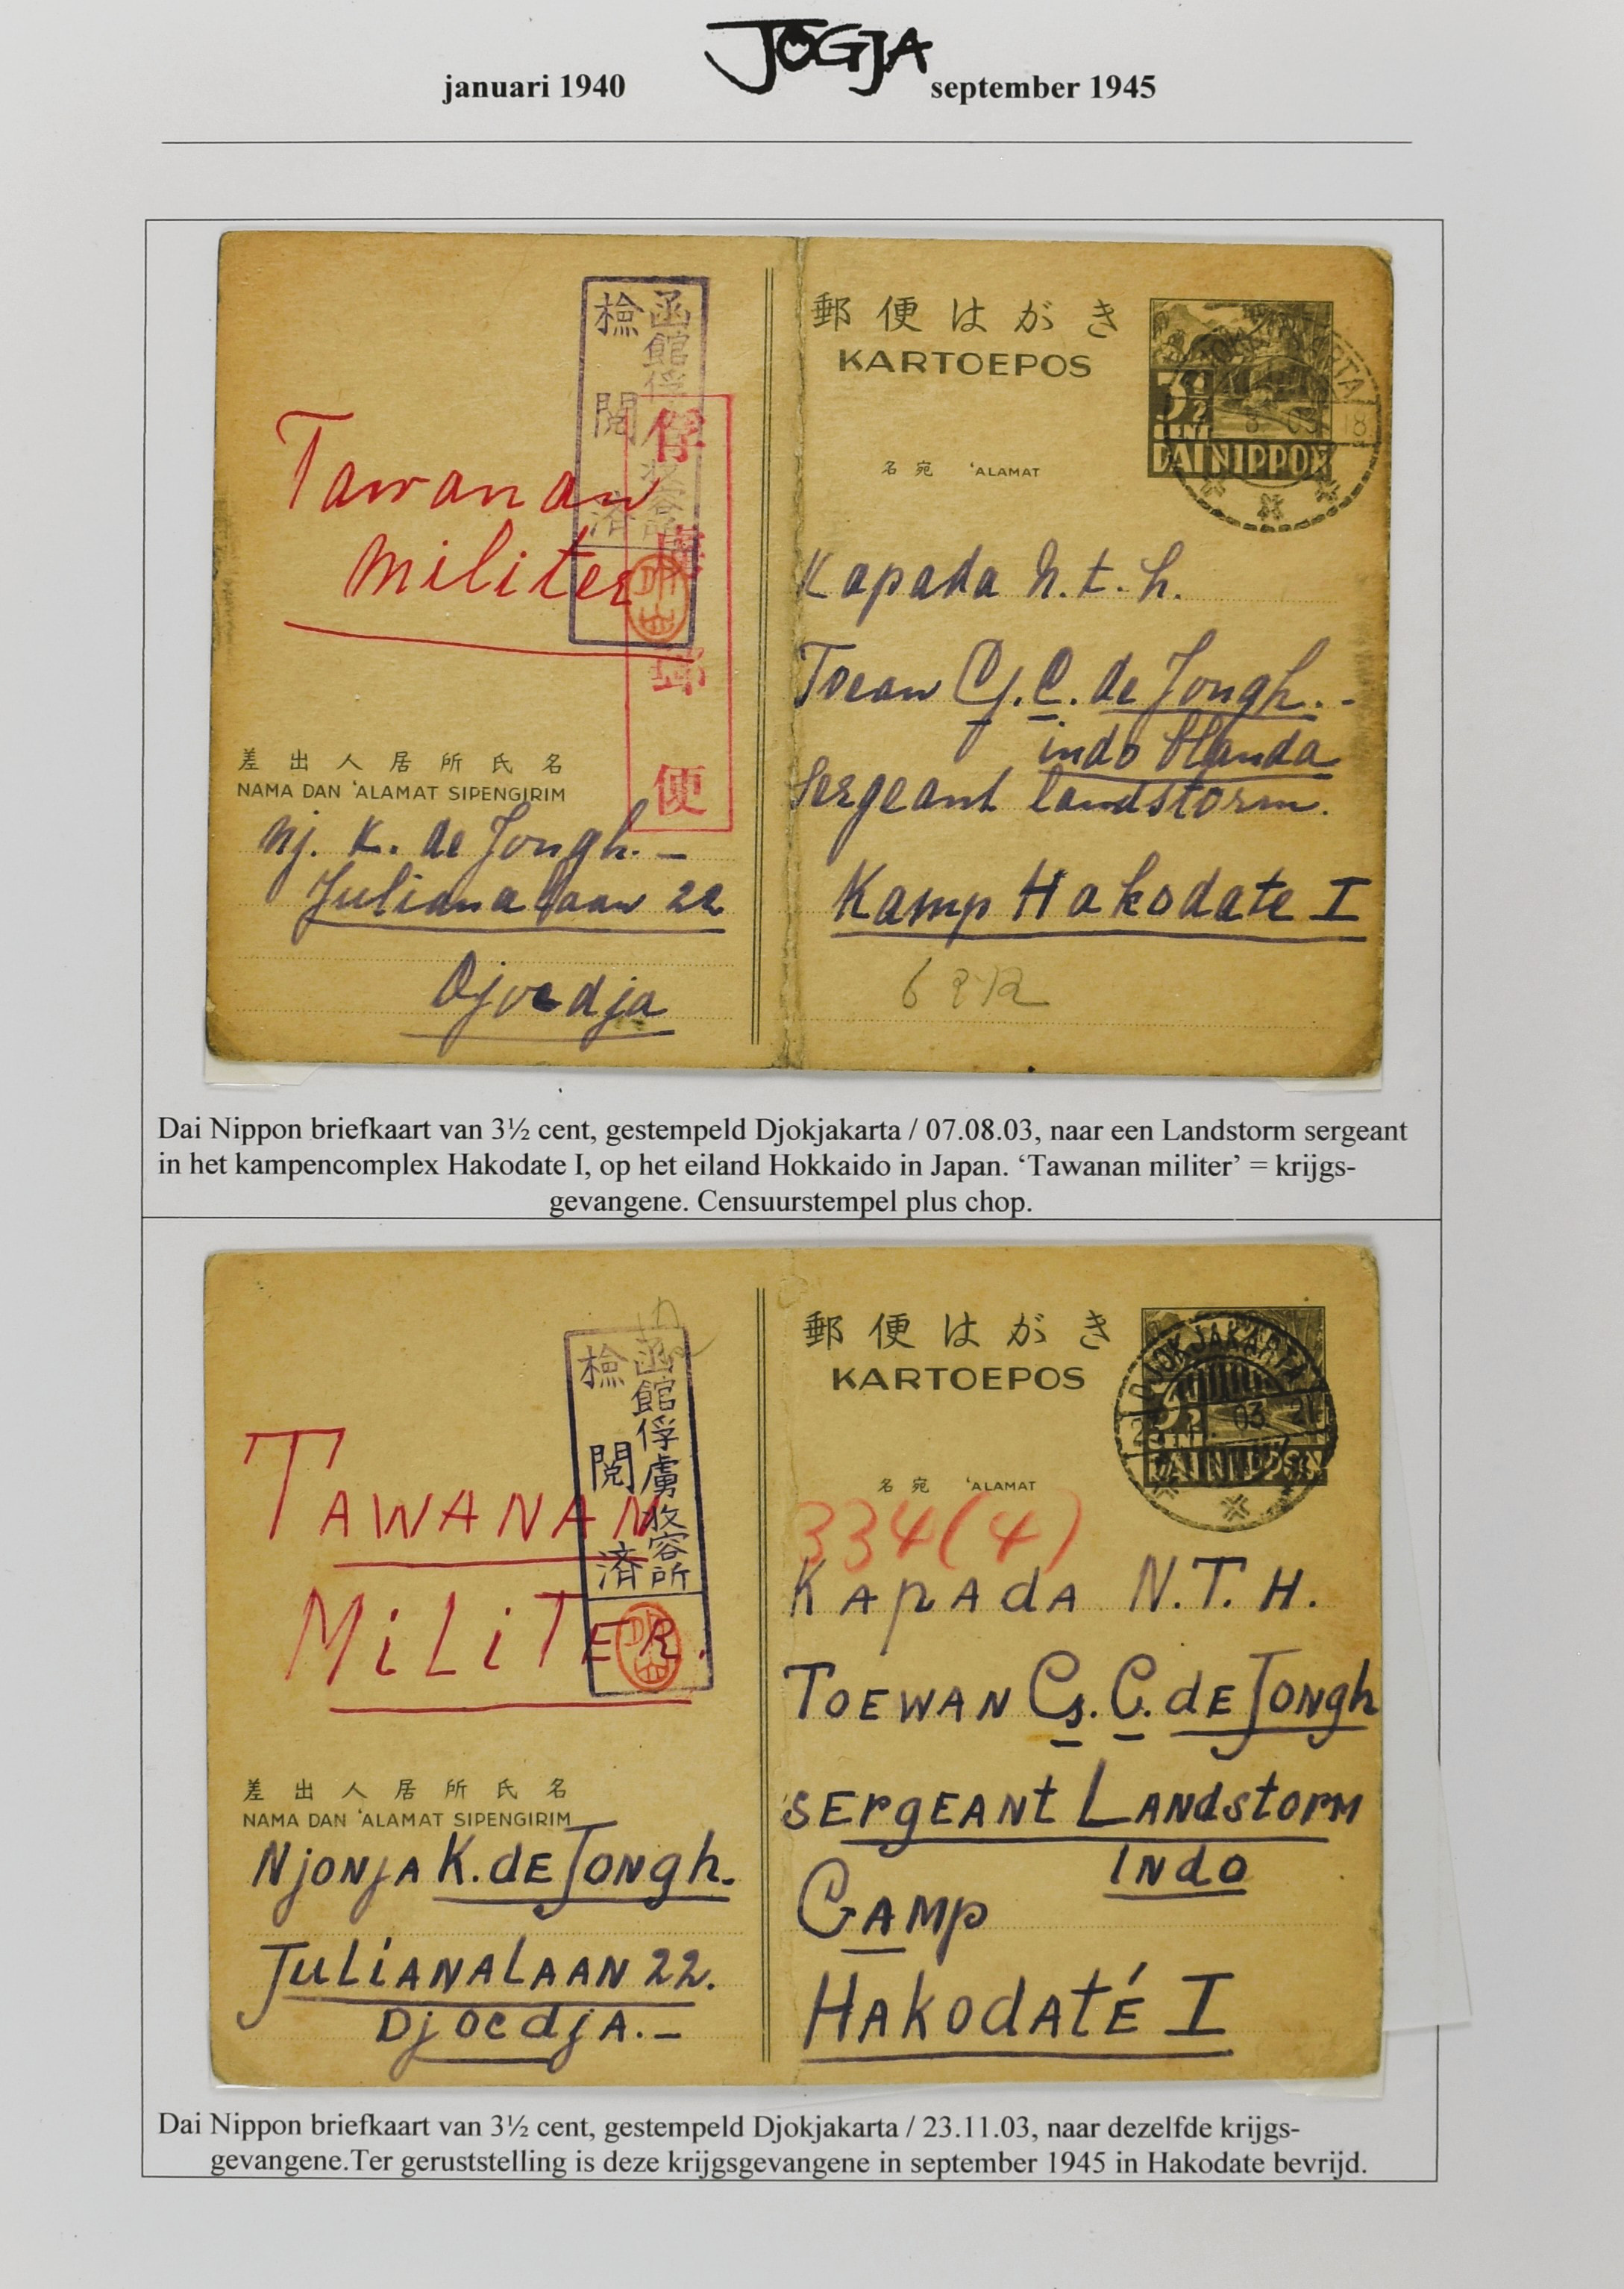 JOGJA
januari 1940 september 1945
郵便はがき
KARTOEPOS
3½
CENT
DAI NIPPON
8 03 18
名宛 'ALAMAT
函館俘虜收容所
檢閲済
俘虜郵便
Tawanan
militer
Kapada N.t.h.
Toean Cj. C. de Jongh.-
indo Blanda
Sergeant landstorm.
Kamp Hakodate I
差出人居所氏名
NAMA DAN 'ALAMAT SIPENGIRIM
Nj. K. de Jongh. –
Julianalaan 22
Djocdja
Dai Nippon briefkaart van 3½ cent, gestempeld Djokjakarta / 07.08.03, naar een Landstorm sergeant
in het kampencomplex Hakodate I, op het eiland Hokkaido in Japan. ‘Tawanan militer’ = krijgs-
gevangene. Censuurstempel plus chop.
郵便はがき
KARTOEPOS
DJOKJAKARTA
DAI NIPPON
名宛 'ALAMAT
函館俘虜收容所
檢閲済
334(4)
TAWANAN
MiLiTER.
KApAdA N.T.H.
TOEWAN Cs. C. dE JONgh
SErgEANt LANdstorM
INdo
CAMp
HAkodAtÉ I
差出人居所氏名
NAMA DAN 'ALAMAT SIPENGIRIM
NjONjA K. dE JONgh.
JuLiANALAAN 22.
DjocdjA.–
Dai Nippon briefkaart van 3½ cent, gestempeld Djokjakarta / 23.11.03, naar dezelfde krijgs-
gevangene.Ter geruststelling is deze krijgsgevangene in september 1945 in Hakodate bevrijd.